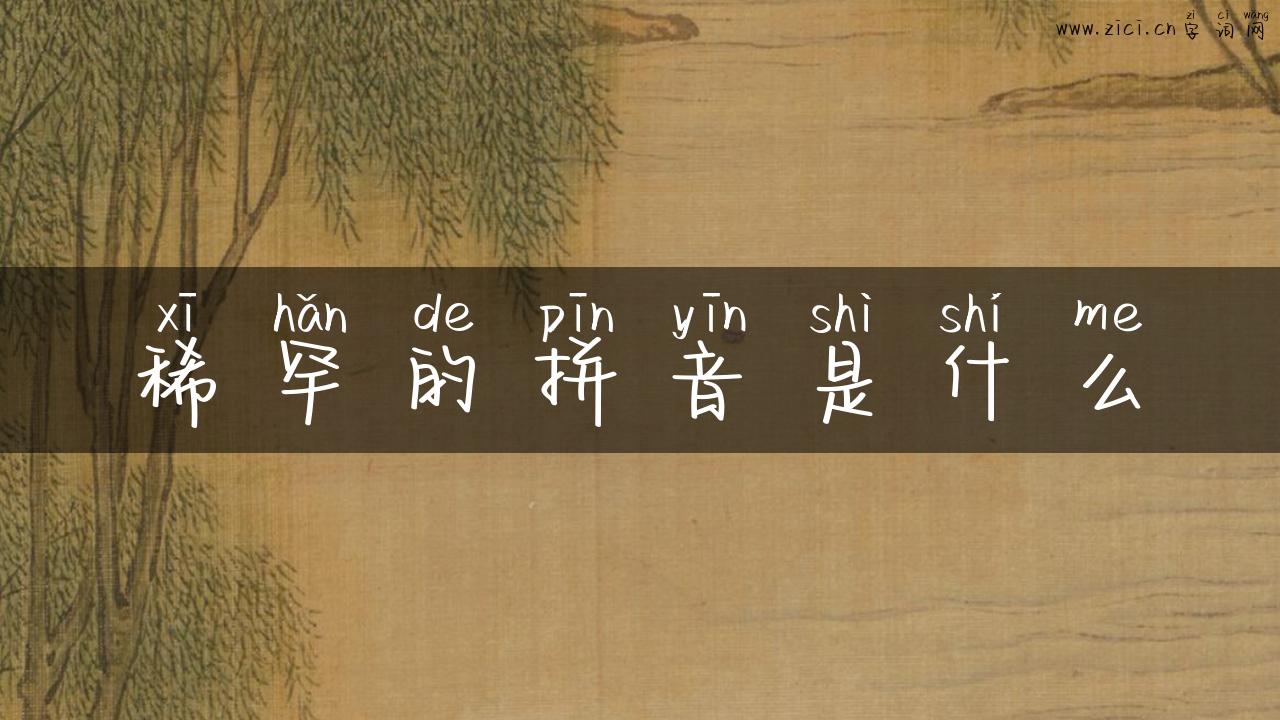 zì cí wǎng
www.zici.cn 字词网
xī hǎn de pīn yīn shì shí me
稀罕的拼音是什么